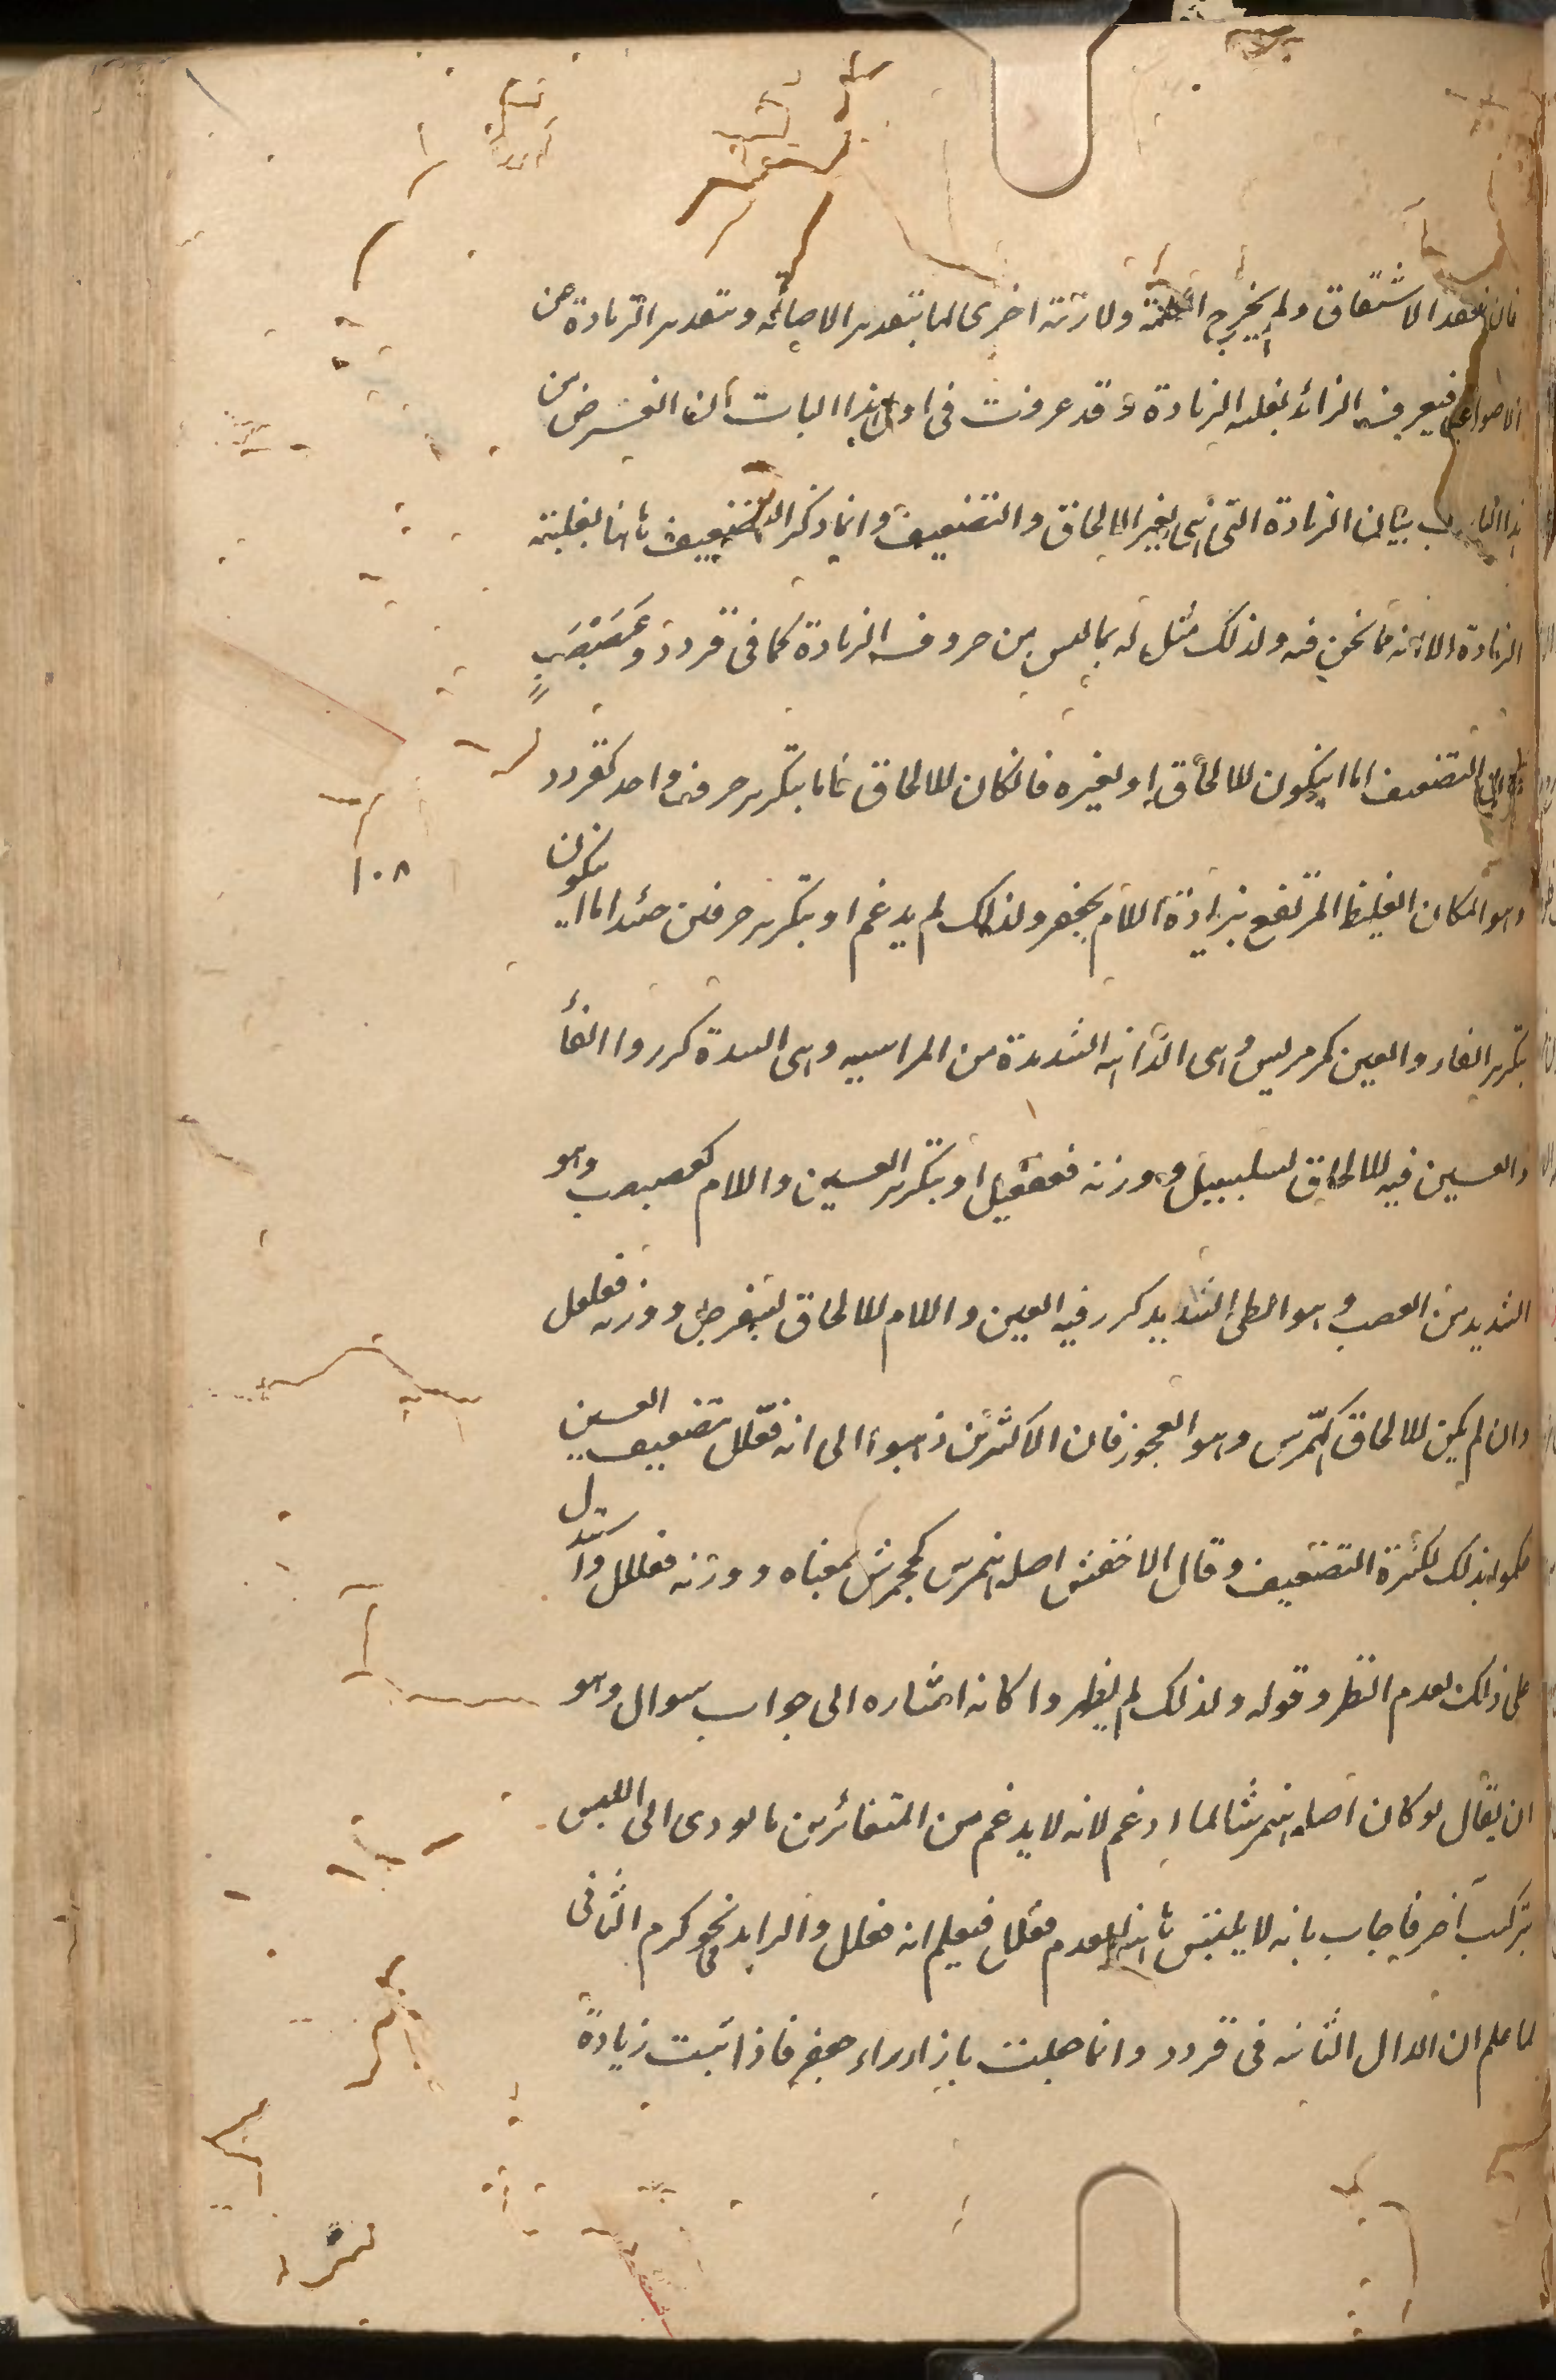 فان فقد الاشتقاق ولم يخرج الكلمة ولا زنة اخرى لها بتقدير الاصالة وبتقدير الزيادة عن
الاصول فيعرف الزائد بغلبه الزيادة وقد عرفت فى اول هذا الباب ان الغرض من
هذا الباب بيان الزيادة التى هى لغير الالحاق والتضعيف وانما ذكر التضعيف ثانيا لغلبته
الزيادة لا انه مما نحن فيه ولذلك مثل له بما ليس من حروف الزيادة كما فى قردد وعَصَبْصَبٍ
التضعيف اما ان يكون للالحاق او لغيره فان كان للالحاق فاما بتكرير حرف واحد كقردد
وهو المكان الغليظ المرتفع بزيادة اللام بجعفر ولذلك لم يدغم او بتكرير حرفين حينئذ اما ان يكون
بتكرير الفاء والعين كمرمريس وهى الداهية الشديدة من المراسه وهى الشدة كرروا الفاء
والعين فيه للالحاق لسلسبيل ووزنه فعفعيل او بتكرير العين واللام كعصبصب وهو
الشديد من العصب وهو الطى الشديد كرر فيه العين واللام للالحاق لسفرجل ووزنه فعلعل
وان لم يكن للالحاق كهمّرش وهو العجوز فان الاكثرين ذهبوا الى انه فعّلل بتضعيف العين
حكموا بذلك لكثرة التضعيف وقال الاخفش اصله هنمرش كجحمرش بمعناه ووزنه فعللل واستدل
على ذلك بعدم النظر وقوله ولذلك لم يظهروا كانه اشاره الى جواب سوال وهو
ان يقال لو كان اصله هنمرشا لما ادغم لانه لا يدغم من المتقاربين ما يودى الى اللبس
بتركيب آخر فاجاب بانه لا يلتبس بانه لعدم فعّلل فيعلم انه فعلل والزايد فى نحو كرم الثانى
لما علم ان الدال الثانيه فى قردد وانما جعلت بازاء راء جعفر فاذا ثبت زيادة
١٠٨